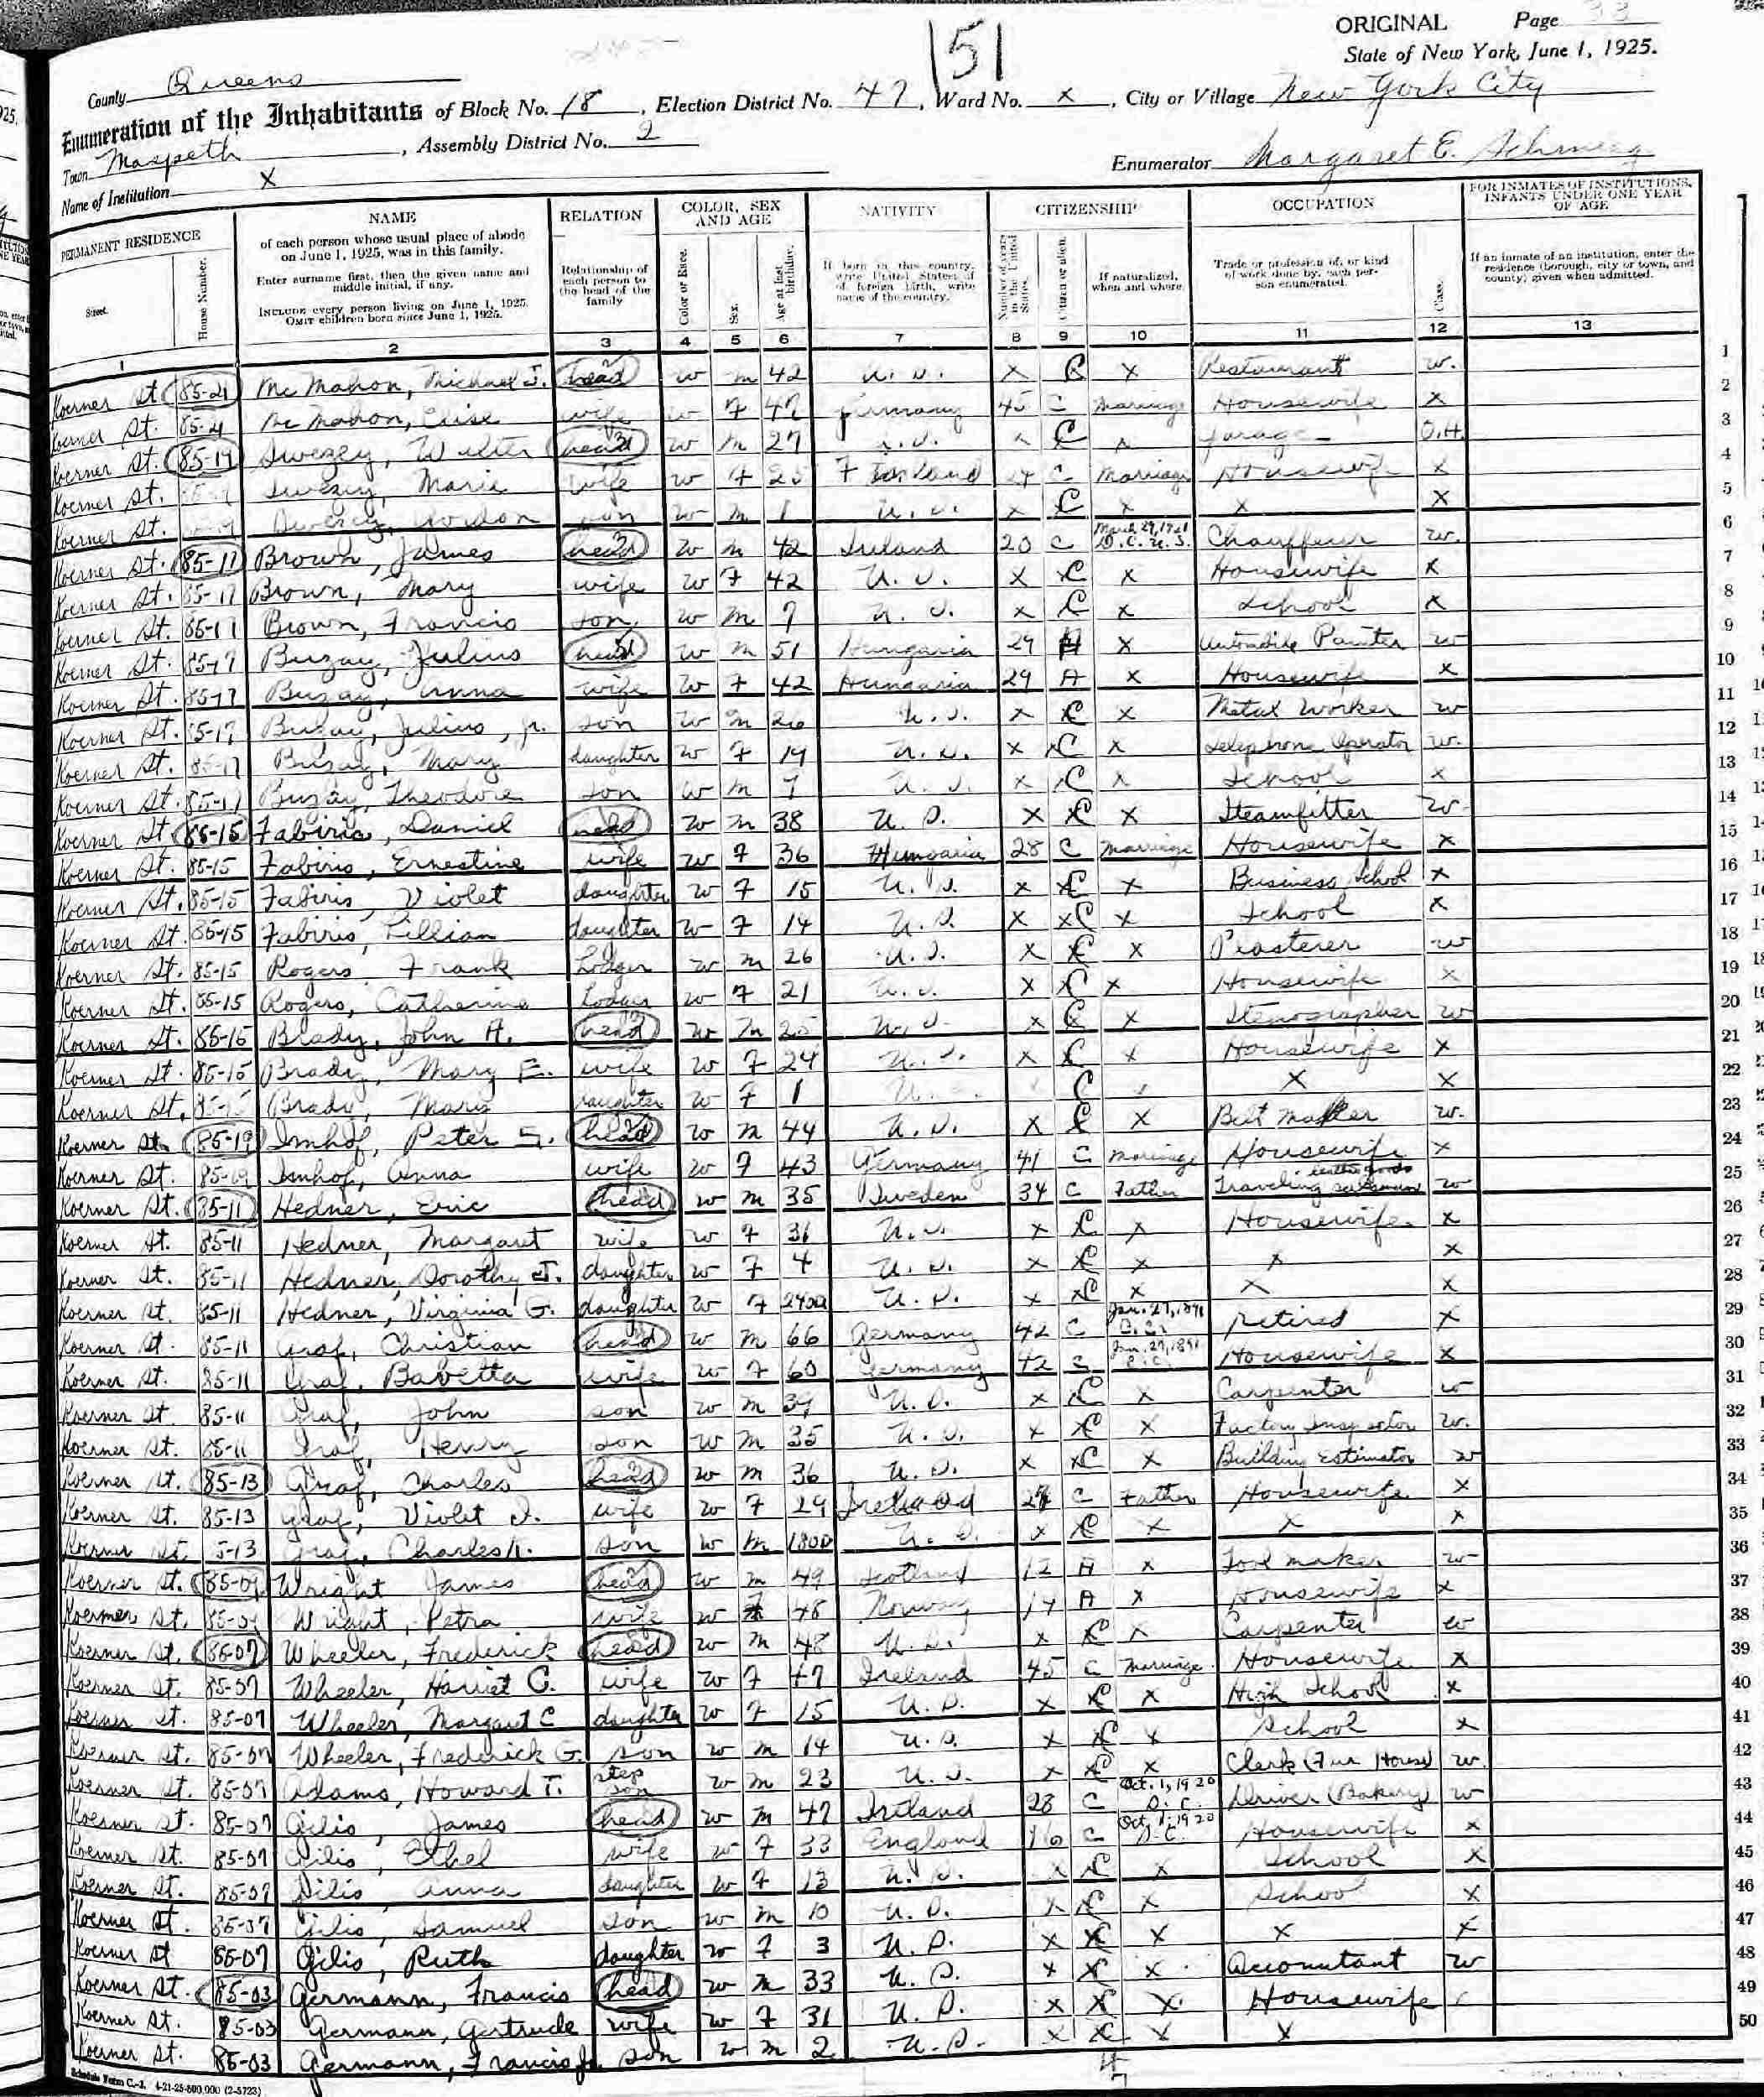 ORIGINAL Page 33
State of New York, June 1, 1925.
151
County Queens
Enumeration of the Inhabitants of Block No. 18, Election District No. 47, Ward No. x, City or Village New York City
Town Maspeth, Assembly District No. 2
Enumerator Margaret E.
Name of Institution X
PERMANENT RESIDENCE NAME RELATION COLOR, SEX AND AGE NATIVITY CITIZENSHIP OCCUPATION FOR INMATES OF INSTITUTIONS, INFANTS UNDER ONE YEAR OF AGE
Street. House Number. of each person whose usual place of abode on June 1, 1925, was in this family. Enter surname first, then the given name and middle initial, if any. INCLUDE every person living on June 1, 1925. OMIT children born since June 1, 1925. Relationship of each person to the head of the family Color or Race. Sex. Age at last birthday. If born in this country, write United States; if of foreign birth, write name of the country. Number of years in the United States. Citizen or alien. If naturalized, when and where. Trade or profession of, or kind of work done by, each person enumerated. Class. If an inmate of an institution, enter the residence (borough, city or town, and county) given when admitted.
1 2 3 4 5 6 7 8 9 10 11 12 13
Koerner St 85-21 Mc Mahon, Michael J. head w m 42 U. S. x C x Restaurant w. 1
Koerner St. 85-21 Mc Mahon, Elise wife w F 47 Germany 45 C marriage Housewife x 2
Koerner St. 85-19 Swezey, Walter head w m 27 U.S. x C x garage O.A. 3
Koerner St. Swezey, Marie wife w F 25 Finland C marriage Housewife x 4
Koerner St. Swezey, Gordon son w m 1 U.S. x C x x x 5
Koerner St. 85-17 Brown, James head w m 42 Ireland 20 C March 29, 1921 D.C.U.S. Chauffeur w. 6
Koerner St. 85-17 Brown, Mary wife w F 42 U. S. x C x Housewife x 7
Koerner St. 85-17 Brown, Francis son w m 7 U. S. x C x School x 8
Koerner St. 85-17 Buzay, Julius head w m 51 Hungaria 29 A x Automobile Painter w 9
Koerner St. 85-17 Buzay, Anna wife w F 42 Hungaria 29 A x Housewife x 10
Koerner St. 85-17 Buzay, Julius, jr. son w m 20 U.S. x C x Metal Worker w 11
Koerner St. 85-17 Buzay, Mary daughter w F 19 U.S. x C x Telephone Operator w. 12
Koerner St. 85-17 Buzay, Theodore son w m 7 U. S. x C x School x 13
Koerner St. 85-15 Fabiris, Daniel head w m 38 U. S. x C x Steamfitter w 14
Koerner St. 85-15 Fabiris, Ernestine wife w F 36 Hungaria 28 C marriage Housewife x 15
Koerner St. 85-15 Fabiris, Violet daughter w F 15 U. S. x C x Business School x 16
Koerner St. 85-15 Fabiris, Lillian daughter w F 14 U. S. x C x School x 17
Koerner St. 85-15 Rogers Frank Lodger w m 26 U.S. x C x Plasterer w 18
Koerner St. 85-15 Rogers, Catherine Lodger w F 21 U.S. x C x Housewife x 19
Koerner St. 85-15 Brady, John A. head w m 25 U.S. x C x Stenographer w 20
Koerner St. 85-15 Brady, Mary E. wife w F 24 U.S. x C x Housewife x 21
Koerner St. 85-15 Brady, Mary daughter w F 1 U. C x x 22
Koerner St. 85-19 Imhof, Peter head w m 44 U.S. x C x Belt maker w. 23
Koerner St. 85-19 Imhof, Anna wife w F 43 Germany 41 C marriage Housewife x 24
Koerner St. 85-11 Hedner, Eric head w m 35 Sweden 34 C Father Traveling salesman leather goods w 25
Koerner St. 85-11 Hedner, Margaret wife w F 31 U.S. x C x Housewife x 26
Koerner St. 85-11 Hedner, Dorothy J. daughter w F 4 U. S. x C x x x 27
Koerner St. 85-11 Hedner, Virginia G. daughter w F U. S. x C x x x 28
Koerner St. 85-11 Graf, Christian head w m 66 Germany 42 C Jan. 27, 1891 Retired x 29
Koerner St. 85-11 Graf, Babetta wife w F 60 Germany 42 C Jan. 27, 1891 Housewife x 30
Koerner St. 85-11 Graf, John son w m 39 U.S. x C x Carpenter w 31
Koerner St. 85-11 Graf, Henry son w m 35 U.S. x C x Factory Inspector w. 32
Koerner St. 85-13 Graf, Charles head w m 36 U.S. x C x Building Estimator w 33
Koerner St. 85-13 Graf, Violet I. wife w F 29 Ireland C Father Housewife x 34
Koerner St. 5-13 Graf, Charles son w m U. S. x C x x x 35
Koerner St. 85-09 Wright James head w m 49 Scotland 12 A x Tool maker w 36
Koerner St. 85-09 Wright, Petra wife w F 48 Norway 17 A x Housewife x 37
Koerner St. 85-07 Wheeler, Frederick head w m 48 U.S. x C x Carpenter w 38
Koerner St. 85-07 Wheeler, Harriet C. wife w F 47 Ireland 45 C marriage Housewife x 39
Koerner St. 85-07 Wheeler, Margaret C daughter w F 15 U.S. x C x High School x 40
Koerner St. 85-07 Wheeler, Frederick G. son w m 14 U.S. x C x School x 41
Koerner St. 85-07 Adams, Howard T. step son w m 23 U.S. x C x Clerk (Fur House) w. 42
Koerner St. 85-07 Gilis, James head w m 47 Ireland 28 C Oct. 1, 1920 D.C. Driver (Bakery) w 43
Koerner St. 85-07 Gilis, Ethel wife w F 33 England 16 C Oct. 1, 1920 D.C. Housewife x 44
Koerner St. 85-07 Gilis Anna daughter w F 13 U.S. x C x School x 45
Koerner St. 85-07 Gilis, Samuel son w m 10 U.S. x C x School x 46
Koerner St 85-07 Gilis, Ruth daughter w F 3 U.S. x C x x x 47
Koerner St. 85-03 Germann, Francis head w m 33 U.S. x C x Accountant w 48
Koerner St. 85-03 Germann, Gertrude wife w F 31 U.S. x C x Housewife 49
Koerner St. 85-03 Germann, Francis Jr son w m 2 U.S. x C x x 50
Schedule Form C.-2. 4-21-25-500,000 (2-5723)